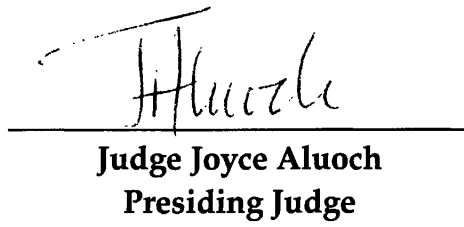 JAluoch
Judge Joyce Aluoch
Presiding Judge